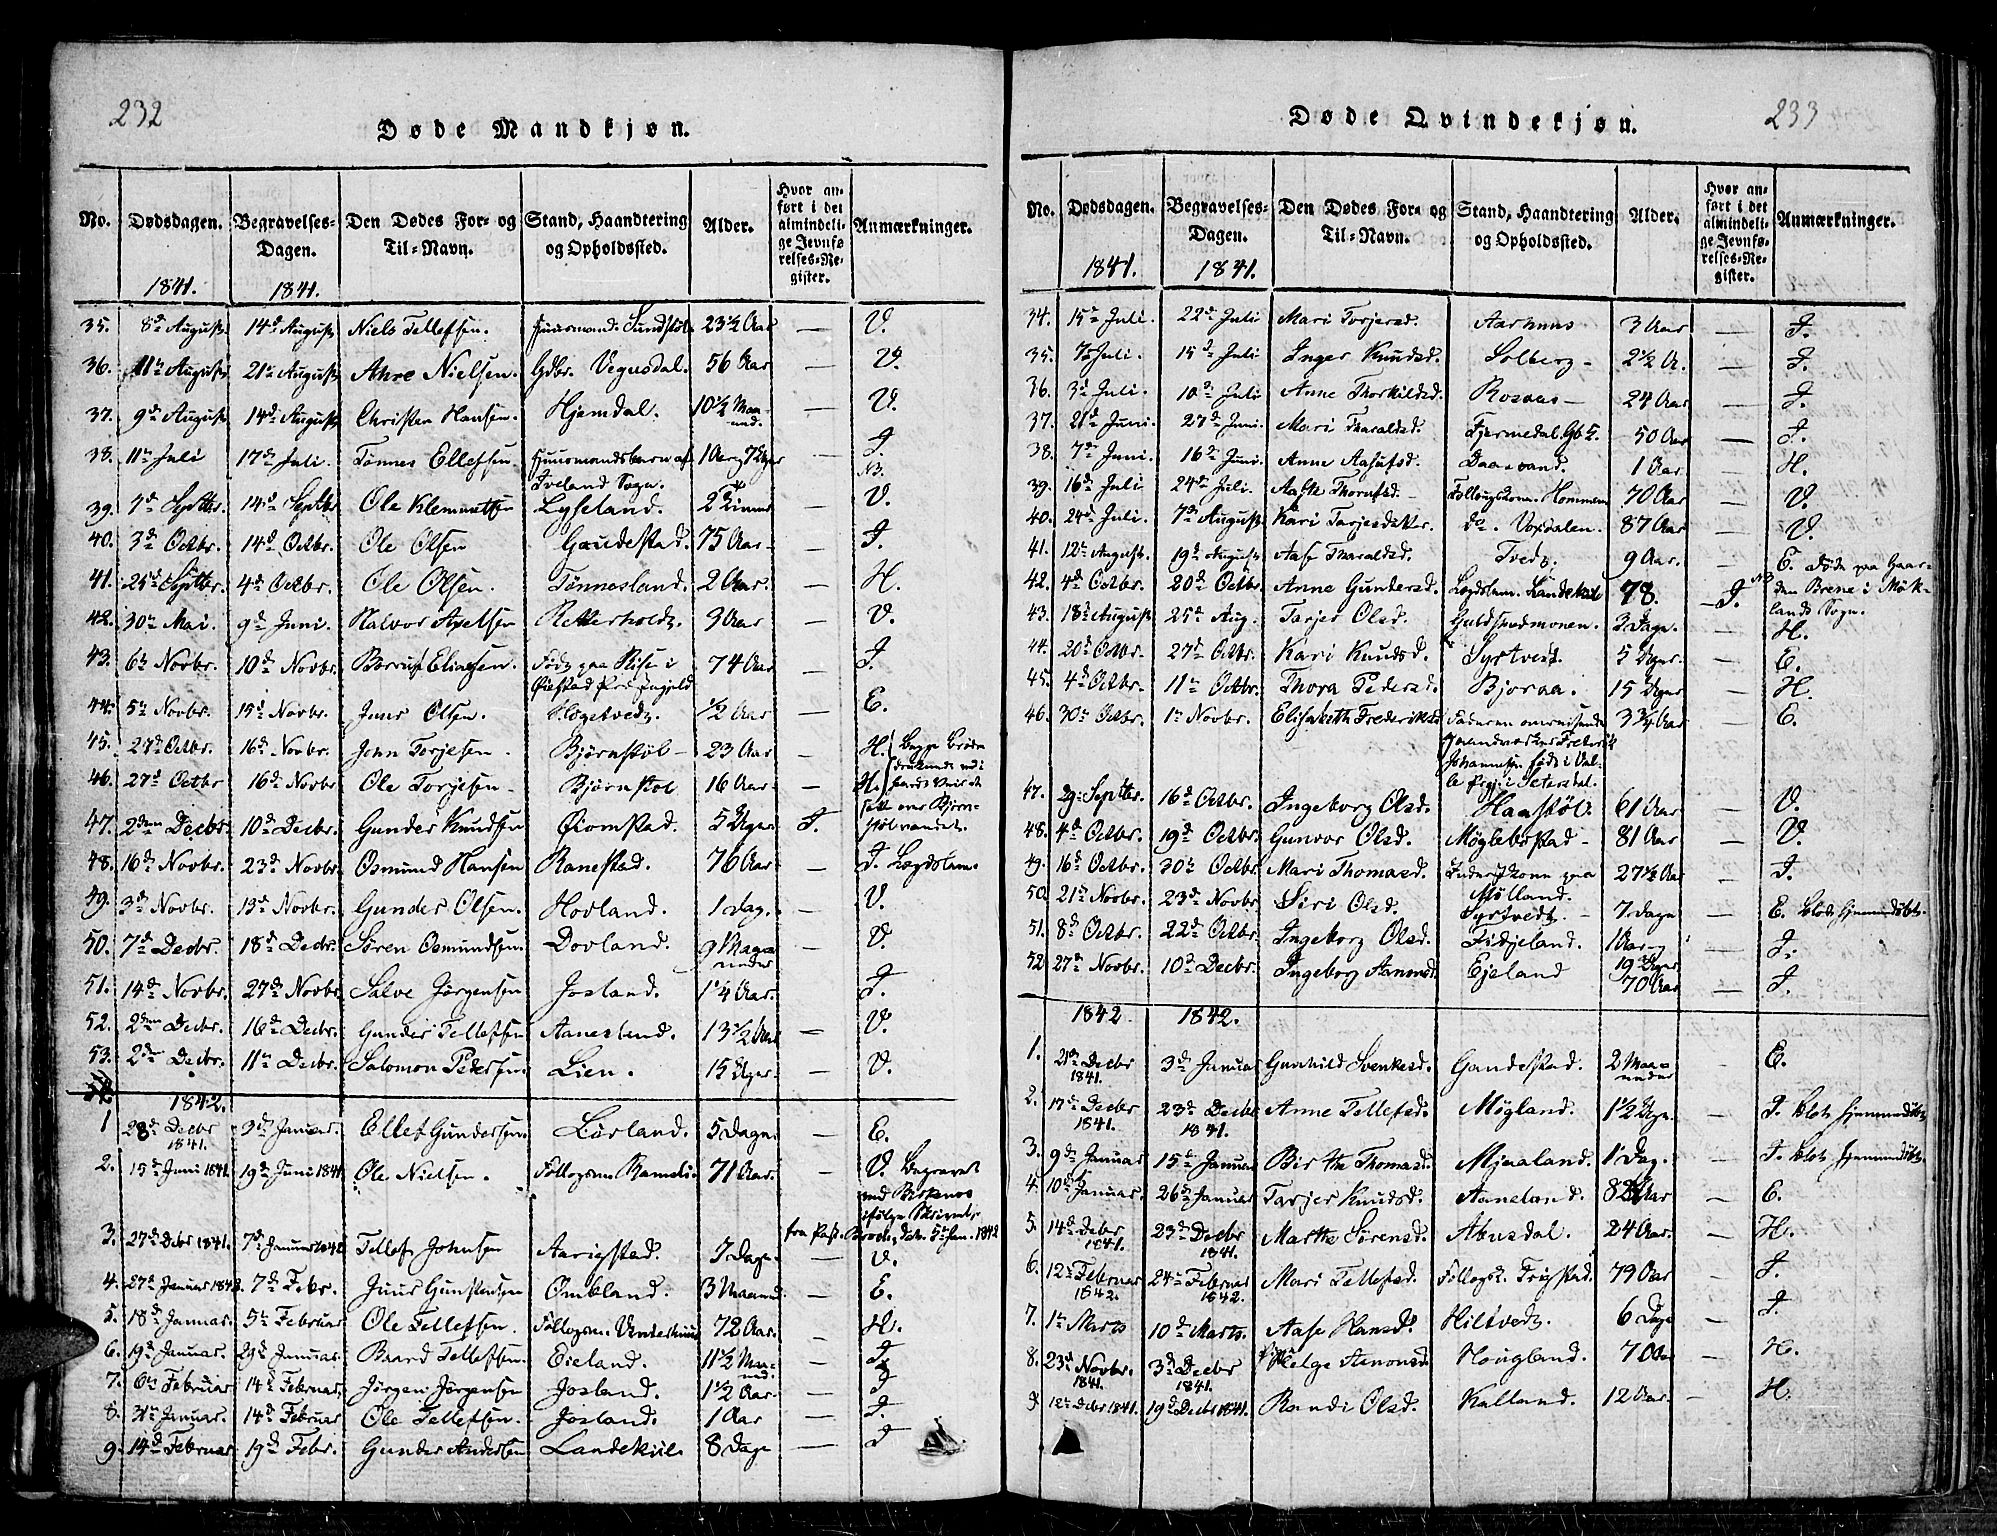 232
Døde Mandkjøn.
No. Dødsdagen. Begravelses-Dagen. Den Dødes For- og Til-Navn. Stand, Haandtering og Opholdssted. Alder. Hvor anført i det almindelige Jevnførelses-Register. Anmærkninger.
1841. 1841.
35. 8de August 14de August Niels Tellefsen. Huusmand Sundstøl 23 1/2 Aar — V.
36. 11te August 21de August Ahre Nielsen. Gdbr. Vegusdal. 56 Aar — V.
37. 9de August 14de August Christen Hansen. Hjemdal. 10 1/2 Maaned. — V.
38. 11te Juli 17de Juli. Tønnes Ellefsen. Huusmandsbarn af Iveland Sogn. 1 Aar 7 Uger — I. NB.
39. 7de Septbr. 14de Septbr Ole Klemmetsen Lyseland. 2 Timer — V.
40. 3de Octbr. 14de Octbr. Ole Olsen Gaudestad. 75 Aar — I.
41. 25de Septbr. 4de Octbr. Ole Olsen. Tønnesland. 2 Aar. — H.
42. 30te Mai. 9de Juni. Halvor Axelsen Retterholt. 3 Aar — V.
43. 6te Novbr. 10de Novbr. Elingsen. Født paa Riise i Øiestad Præstegjeld 74 Aar — I.
44. 5te Novbr. 15de Novbr. Juus Olsen. Høgetvedt. 1/2 Aar — E.
45. 27de Octbr. 16de Novbr. John Torjesen. Bjørnstøl — 23 Aar — H. Begge Brødre druknede ved i
46. 27de Octbr 16de Novbr Ole Torjesen — Bjørnstøl 16 Aar — H. sætte over Bjørn-
47. 2den Decbr. 10de Decbr. Gunder Knudsen Øiomstad. 5 Uger I. støl vandet.
48. 16de Novbr. 23de Novbr. Osmund Hansen Ranestad. 76 Aar — I. Lægdslem.
49. 3de Novbr. 13de Novbr. Gunder Olsen. Hovland. 1 Dag. — V.
50. 7de Decbr. 18de Decbr. Søren Osmundsen. Dovland. 9 Maaneder — V.
51. 14de Novbr. 27de Novbr. Salve Jørgensen Josland. 1 1/4 Aar. — I.
52. 2den Decbr. 16de Decbr. Gunder Tellefsen Aanesland. 13 1/2 Aar — V.
53. 2den Decbr. 11te Decbr. Salomon Pedersen. Lien. 15 Uger — V.
1842.
1 28de Decbr 1841. 3de Januar. Ellef Gundersen. Lisland. 5 Dage — E.
2. 15de Juni 1841. 19de Juni 1841 Ole Nielsen. 71 Aar. — V. Begravet ved Birkenes ifølge Skrivelse
3. 27de Decbr 1841. 7de Januar 1842 Tellef Johnsen Aarigstad. 7 Dage — V.
4. 27de Januar 1842. 7de Febr. Juus Gunstensen Omkland. 3 Maaned. — E.
5. 18de Januar. 5te Februar Ole Tellefsen. 72 Aar. — H.
6. 19de Januar. 29de Januar. Baard Tellefsen. Eieland. 11 1/2 Maaned. — I.
7. 6te Februar 14de Februar. Jørgen Jørgensen Josland. 1 1/2 Aar. — I
8. 31te Januar. 14de Februar Ole Tellefsen. Josland. 1 Aar — I.
9. 14de Februar 19de Febr. Gunder Andersen Landekiil. 8 Dage — I
233
Døde Qvindekjøn.
No. Dødsdagen. Begravelses-Dagen. Den Dødes For- og Til-Navn. Stand, Haandtering og Opholdssted. Alder. Hvor anført i det almindelige Jevnførelses-Register. Anmærkninger.
1841. 1841.
34. 15de Juli 22de Juli Mari Torjersd. Aarhuus 3 Aar — I.
35. 7de Juli. 15de Juli Inger Knudsd. Solberg — 2 1/2 A. — I.
36. 3de Juli. 10de Juli Anne Thorkildsd. Rosaas — 24 Aar — I.
37. 21de Juni. 27de Juni. Mari Tharaldsd. Fjermedal. 50 Aar — I.
38. 7de Juni. 16de Juni. Anne Aasufsd. Daasvand. 1 Aar — H.
39. 16de Juli 24de Juli. Aase Thorufsd. — Hommen 70 Aar — V.
40. 24de Juli. 7de August Kari Tarjesdatter. do. Voxdalen. 87 Aar — V.
41. 12te August. 19de August Aase Tharaldsd. Tvedt. 9 Aar. — E. Døde paa Gaar-
42. 4de Octbr. 20de Octbr. Anne Gundersd. Lægdslem. Landekiil 78. — I. NB den Brene i Møk-
43. 18de August 25de Aug. Tarjer Olsd. Guldsmedmonen. 3 Dage. — lands Sogn. H.
44. 20de Octbr. 27de Octbr. Kari Knudsd. Syrtvedt. 5 Uger. — E.
45. 4de Octbr. 11te Octbr. Thora Pedersd. Bjoraa. 15 Uger — H.
46. 30te Octbr. 1te Novbr. Elisabeth Frederiksd Faderen omreisende Frederik Johannesen født i Valle Pgj. i Sætersdal. 3 3/4 Aar — E.
47. 29. Septbr. 16de Octbr. Ingeborg Olsd. Haastøl. 61 Aar — V.
48. 4de Octbr. 19de Octbr. Gunvor Olsd. Møglebostad — 81 Aar — V.
49. 16de Octbr. 30te Octbr. Mari Thomasd. Inderstkone paa Mølland. 27 1/2 Aar — I.
50. 21de Novbr. 23de Novbr Siri Olsd. Syrtvedt. — 7. Dage — E. blot hjemmedøbt.
51. 8de Octbr. 22de Octbr. Ingeborg Olsd. Fidjeland. 1 Aar 19 Uger. — I.
52 27de Novbr. 10de Decbr. Ingeborg Aanonsd. Ejeland 70 Aar — I.
1842 1842.
1. 21de Decbr 1841. 3de Januar Gunhild Svenkesd. Gaudestad. 2 Maaneder — E.
2. 17de Decbr 1841. 23de Decbr 1841. Anne Tellefsd. Møgland. 1 1/2 Uge. — I. blot hjemmedøbt.
3. 9de Januar 15de Januar Birthe Thomasd. Mjaaland. 1 Dag. — I. blot hjemmedøbt.
4. 10de Januar. 26de Januar Tarjer Knudsd. Aaneland. 82 Aar — E.
5. 14de Decbr 1841. 23de Decbr 1841. Marthe Sørensd. Abusdal. 24 Aar. — H.
6. 12te Februar 1842. 24de Februar 1842. Mari Tellefsd. 79 Aar — I.
7. 1te Marts 10de Marts. Aase Hansd. Hiltvedt. 6 Dage — I.
8. 23de Novbr. 1841. 3de Decbr 1841. Helge Aanonsd. Hougland. 7 Aar — H.
9 12te Decbr 1841. 19de Decbr 1841. Randi Olsd. Kalland. 12 Aar. — H.